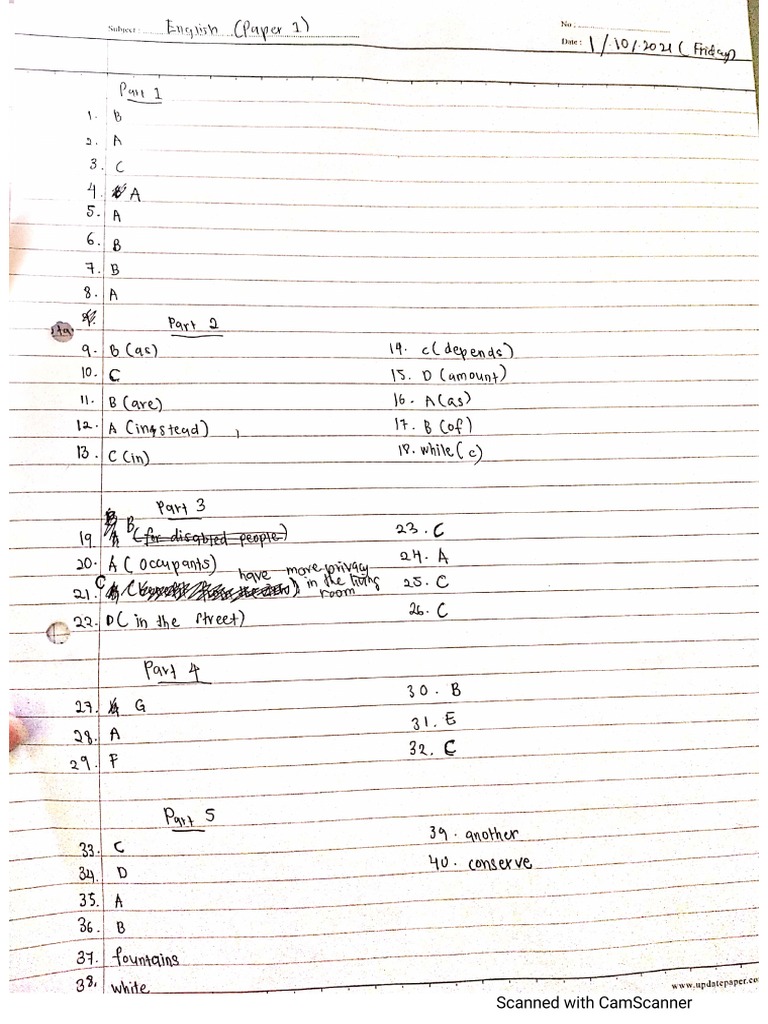 Subject: English (Paper 1)
No:
Date: 1/10/2021 (Friday)
Part 1
1. B
2. A
3. C
4. A
5. A
6. B
7. B
8. A
Part 2
9. B (as)
10. C
11. B (are)
12. A (instead)
13. C (in)
14. C (depends)
15. D (amount)
16. A (as)
17. B (of)
18. while (c)
Part 3
19. B (for disabled people)
20. A (occupants)
21. C have more privacy in the living room
22. D (in the street)
23. C
24. A
25. C
26. C
Part 4
27. G
28. A
29. F
30. B
31. E
32. C
Part 5
33. C
34. D
35. A
36. B
37. fountains
38. white
39. another
40. conserve
www.updatepaper.co
Scanned with CamScanner